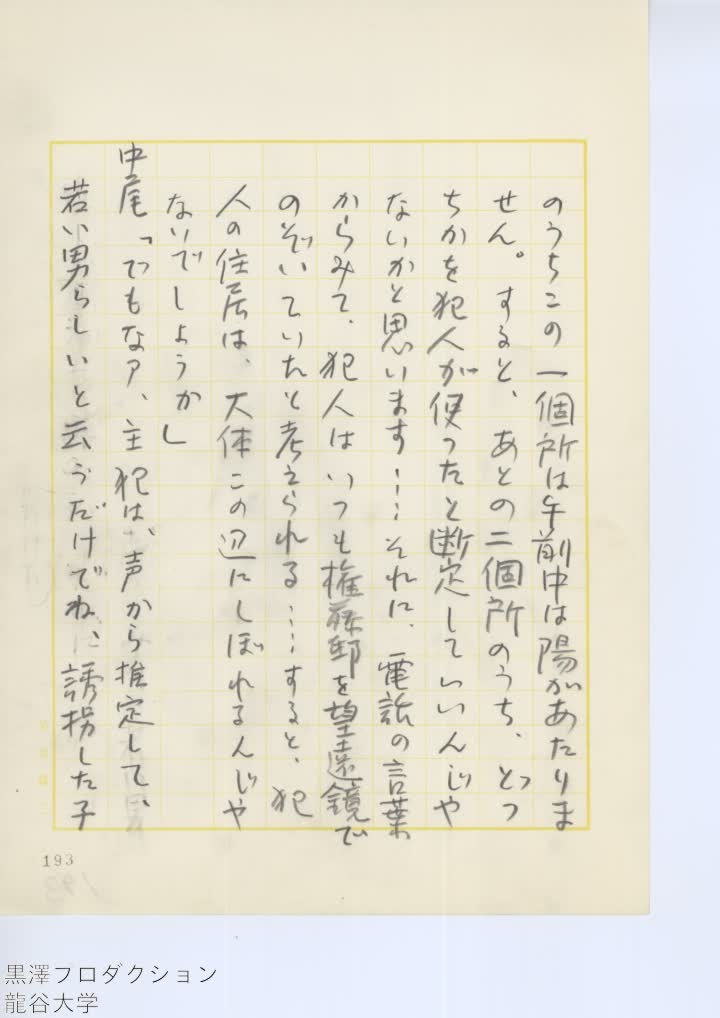 のうちこの一個所は午前中は陽があたりま
せん。すると、あとの二個所のうち、どっ
ちかを犯人が使ったと断定していいんじや
ないかと思います……それに、電話の言葉
からみて、犯人はいつも権藤邸を望遠鏡で
のぞいていたと考えられる……すると、犯
人の住居は、大体この辺にしぼれるんじや
ないでしょうか」
中尾「でもなア、主犯は、声から推定して、
若い男らしいと云うだけでね、誘拐した子
193
黒澤プロダクション
龍谷大学